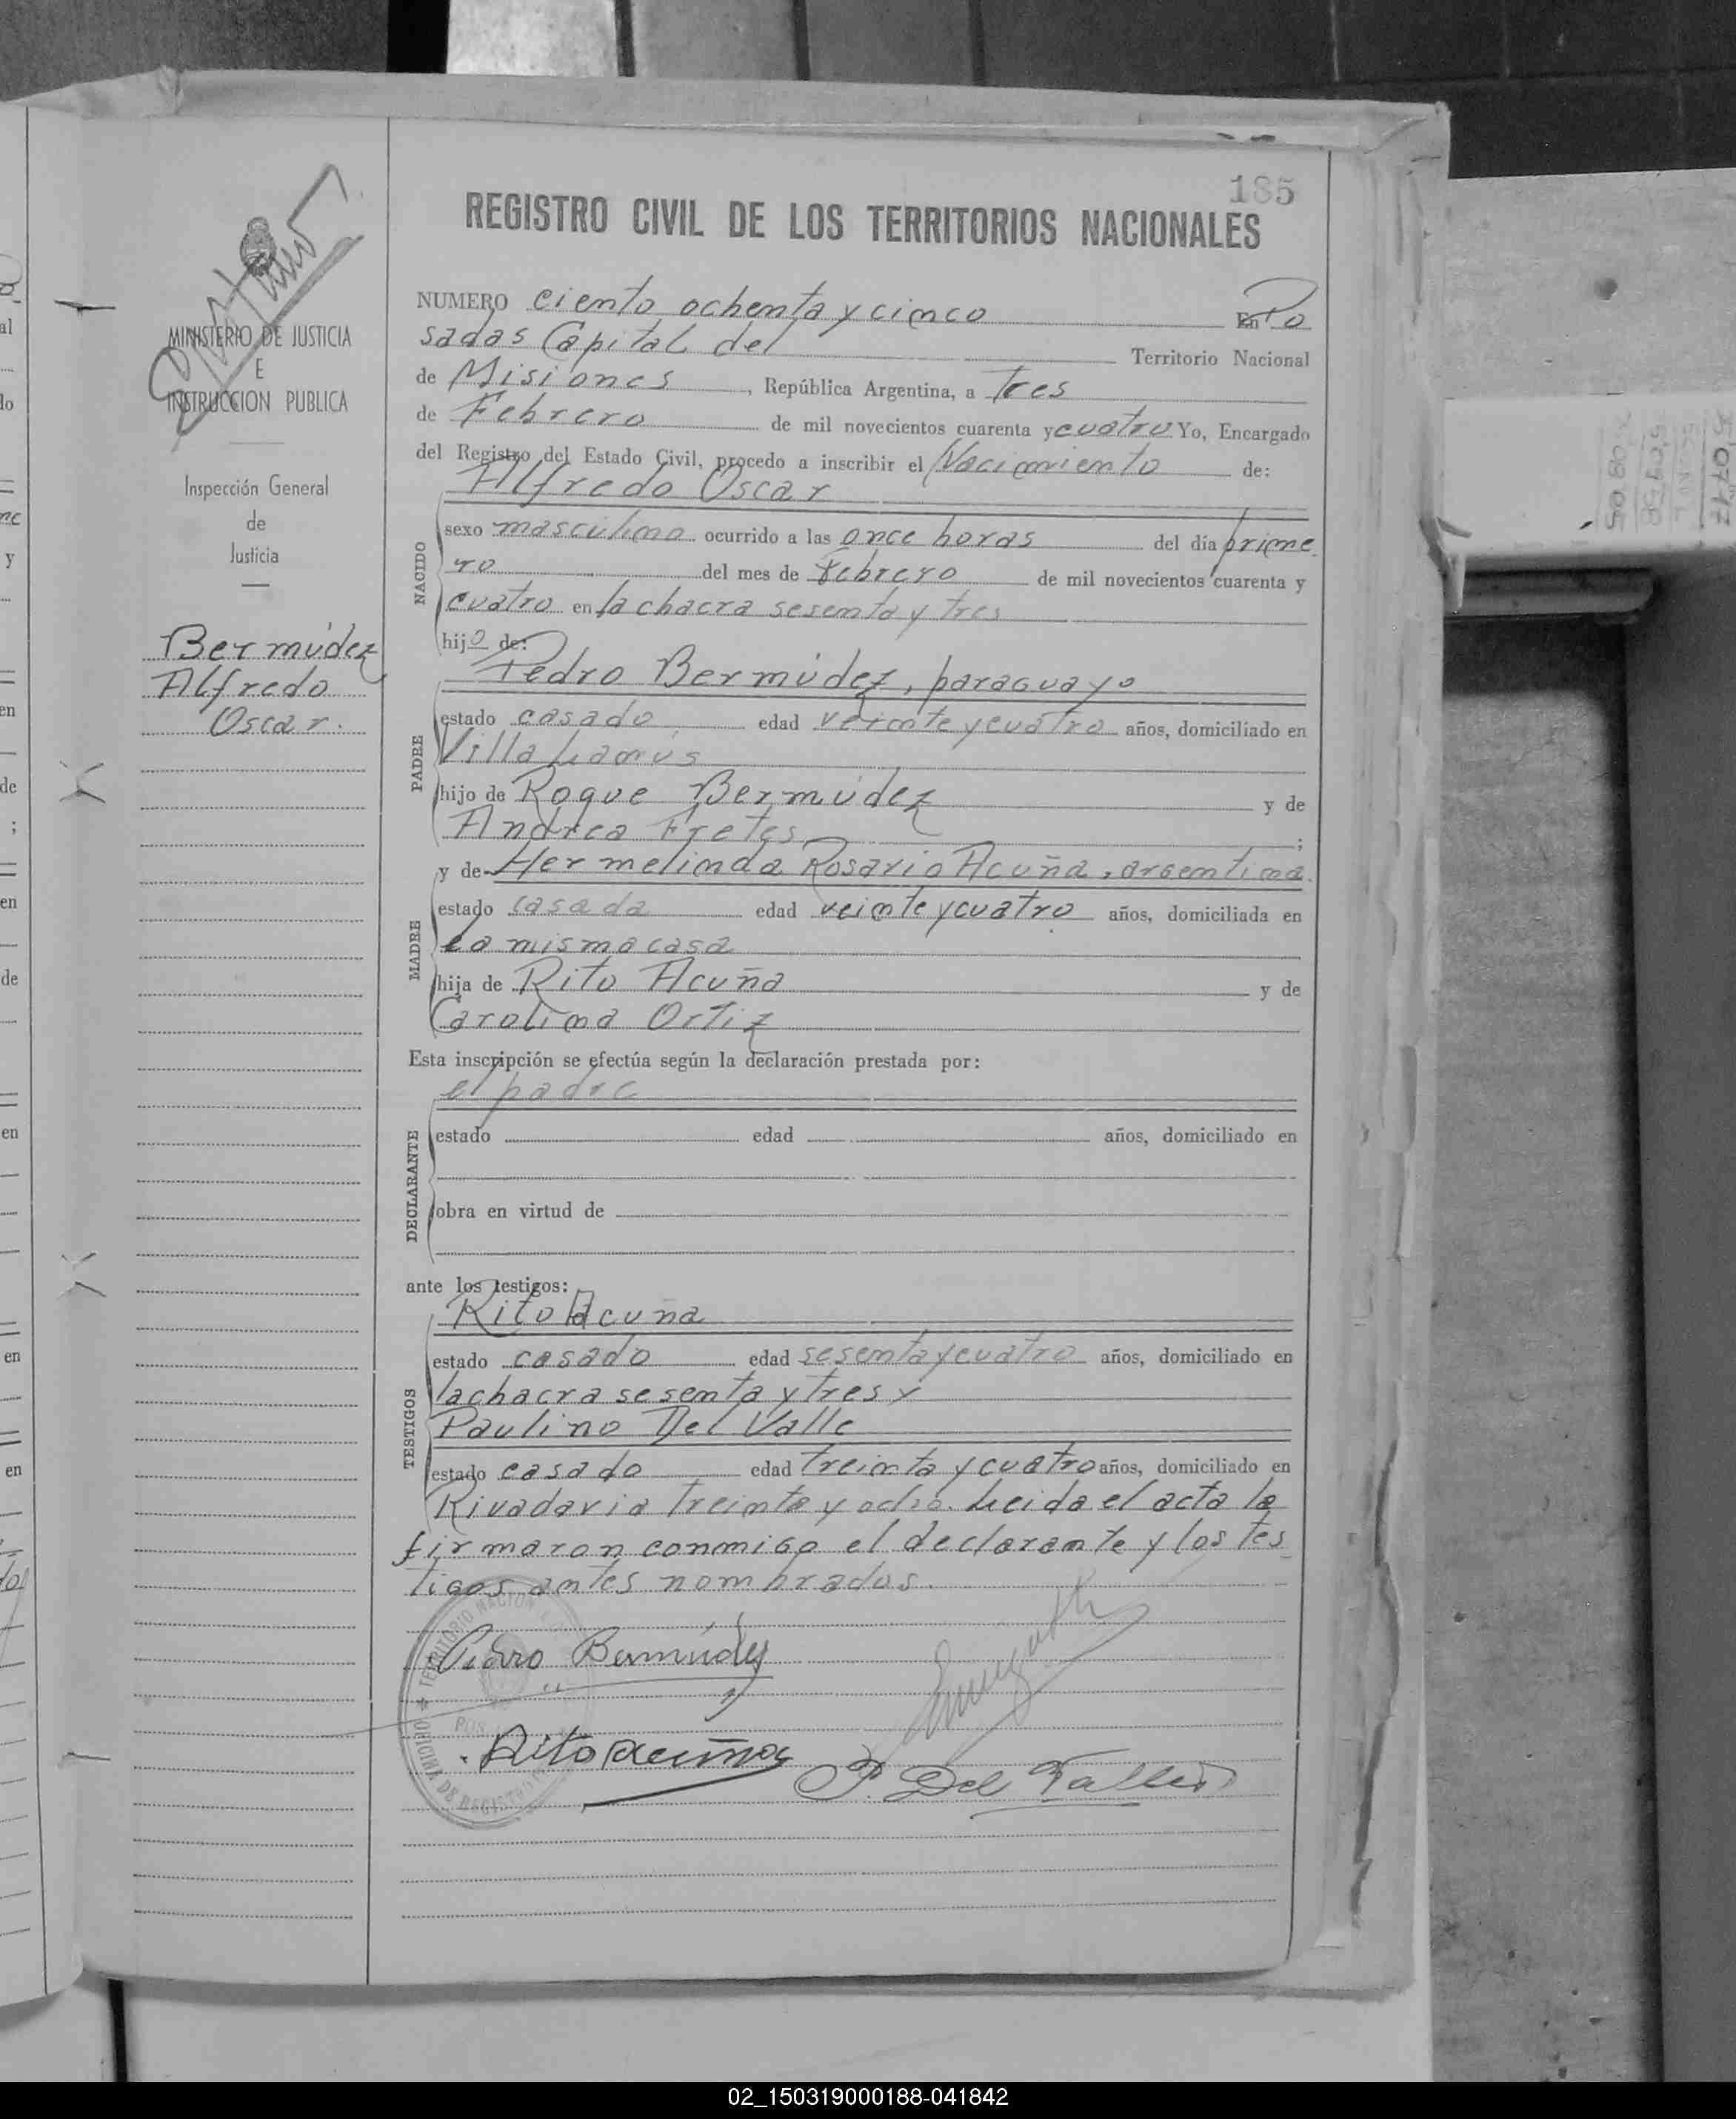 185
REGISTRO CIVIL DE LOS TERRITORIOS NACIONALES
MINISTERIO DE JUSTICIA
E
INSTRUCCION PUBLICA
Inspección General
de
Justicia
Bermúdez
Alfredo
Oscar.
NUMERO ciento ochenta y cinco En Po
sadas Capital del Territorio Nacional
de Misiones, República Argentina, a tres
de Febrero de mil novecientos cuarenta y cuatro Yo, Encargado
del Registro del Estado Civil, procedo a inscribir el Nacimiento de:
Alfredo Oscar
NACIDO
sexo masculino ocurrido a las once horas del día prime
ro del mes de febrero de mil novecientos cuarenta y
cuatro en la chacra sesenta y tres
hijo de:
Pedro Bermúdez, paraguayo
PADRE
estado casado edad veinte y cuatro años, domiciliado en
Villa Lanús
hijo de Roque Bermúdez y de
Andrea Fretes;
y de Hermelinda Rosario Acuña, argentina
MADRE
estado casada edad veinte y cuatro años, domiciliada en
la misma casa
hija de Rito Acuña y de
Carolina Ortiz
Esta inscripción se efectúa según la declaración prestada por:
el padre
DECLARANTE
estado edad años, domiciliado en
obra en virtud de
ante los testigos:
Rito Acuña
TESTIGOS
estado casado edad sesenta y cuatro años, domiciliado en
la chacra sesenta y tres y
Paulino Del Valle
estado casado edad treinta y cuatro años, domiciliado en
Rivadavia treinta y ocho. Leida el acta la
firmaron conmigo el declarante y los tes
tigos antes nombrados.
Pedro Bermúdez
Rito Acuña
P. Del Valle
02_150319000188-041842